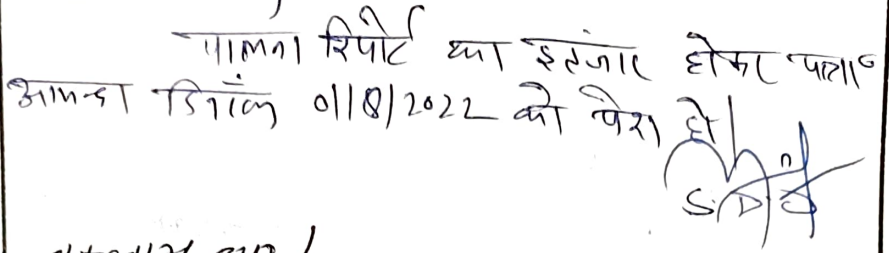 पालना रिपोर्ट का इन्तजार होकर पत्रा०
आयन्दा दिनांक 01/8/2022 को पेश हो।